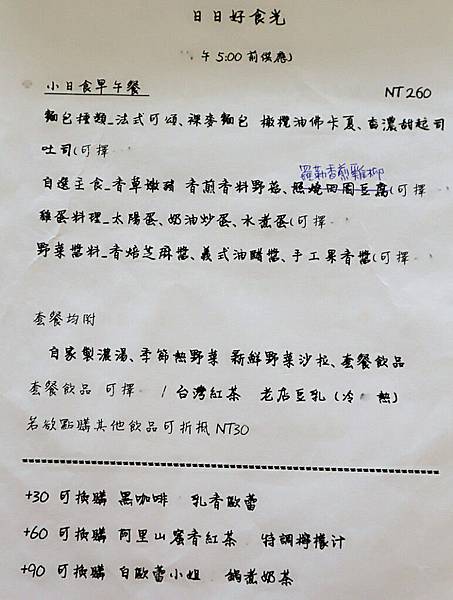 日日好食光
午5:00前供應)
小日食早午餐 NT260
麵包種類_法式可頌、裸麥麵包 橄欖油佛卡夏、香濃甜起司
吐司(可擇
羅勒香煎雞柳
自選主食_香草嫩豬 香煎香料野菇、照燒田園豆腐(可擇
雞蛋料理_太陽蛋、奶油炒蛋、水煮蛋(可擇
野菜醬料_香焙芝麻醬、義式油醋醬、手工果香醬(可擇
套餐均附
自家製濃湯、季節熱野菜 新鮮野菜沙拉、套餐飲品
套餐飲品 可擇 / 台灣紅茶 老店豆乳(冷 熱)
若欲點購其他飲品可折抵NT30
+30 可換購 黑咖啡 乳香歐蕾
+60 可換購 阿里山蜜香紅茶 特調檸檬汁
+90 可換購 白歐蕾小姐 鍋煮奶茶